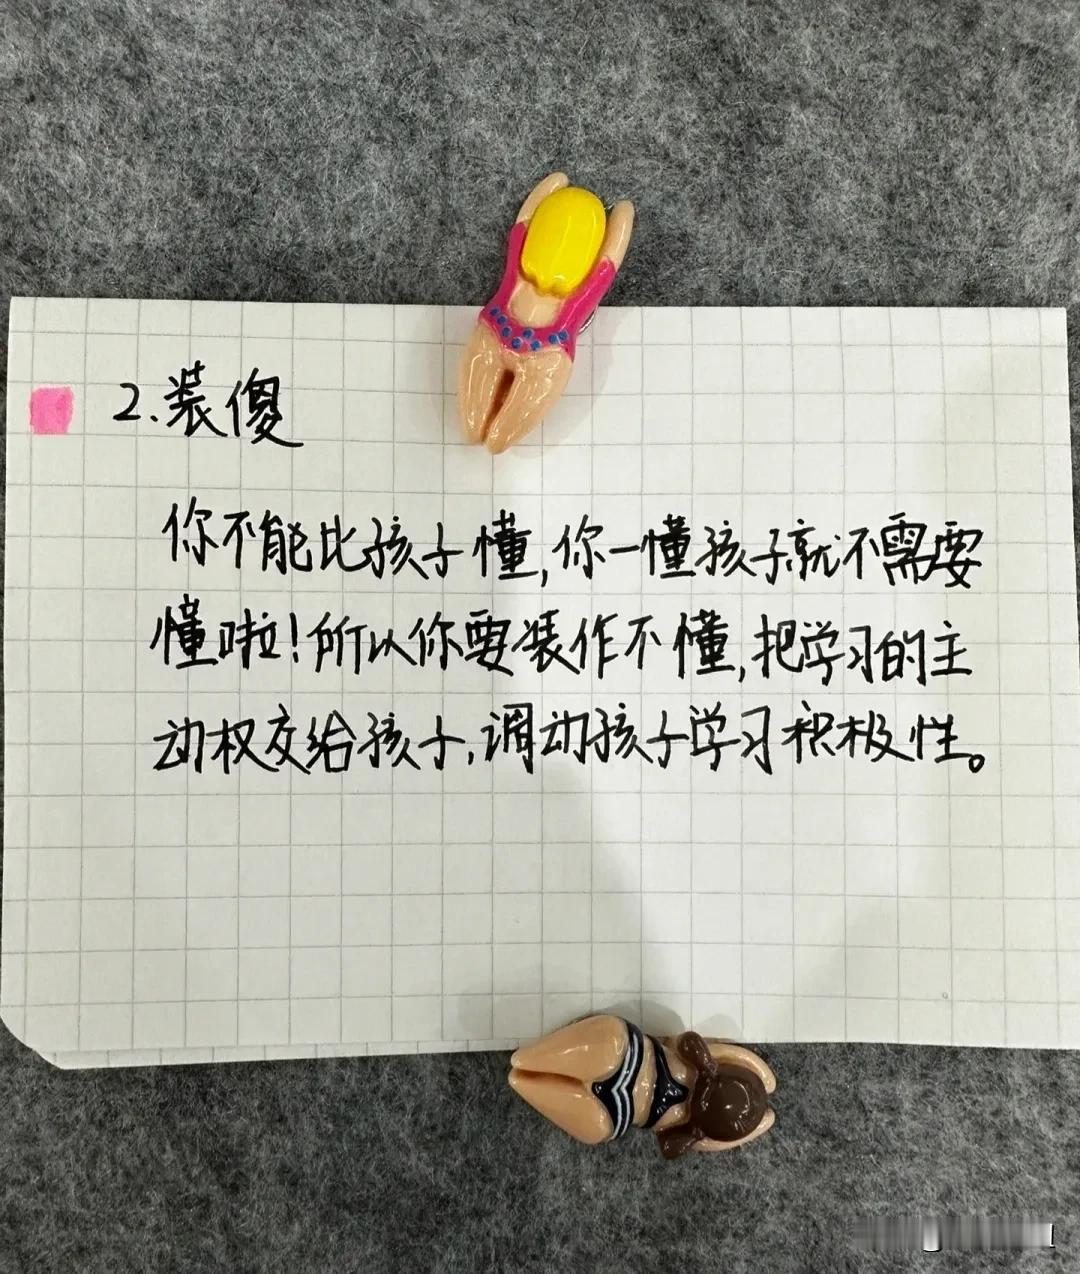 2.装傻
你不能比孩子懂,你一懂孩子就不需要
懂啦!所以你要装作不懂,把学习的主
动权交给孩子,调动孩子学习积极性。